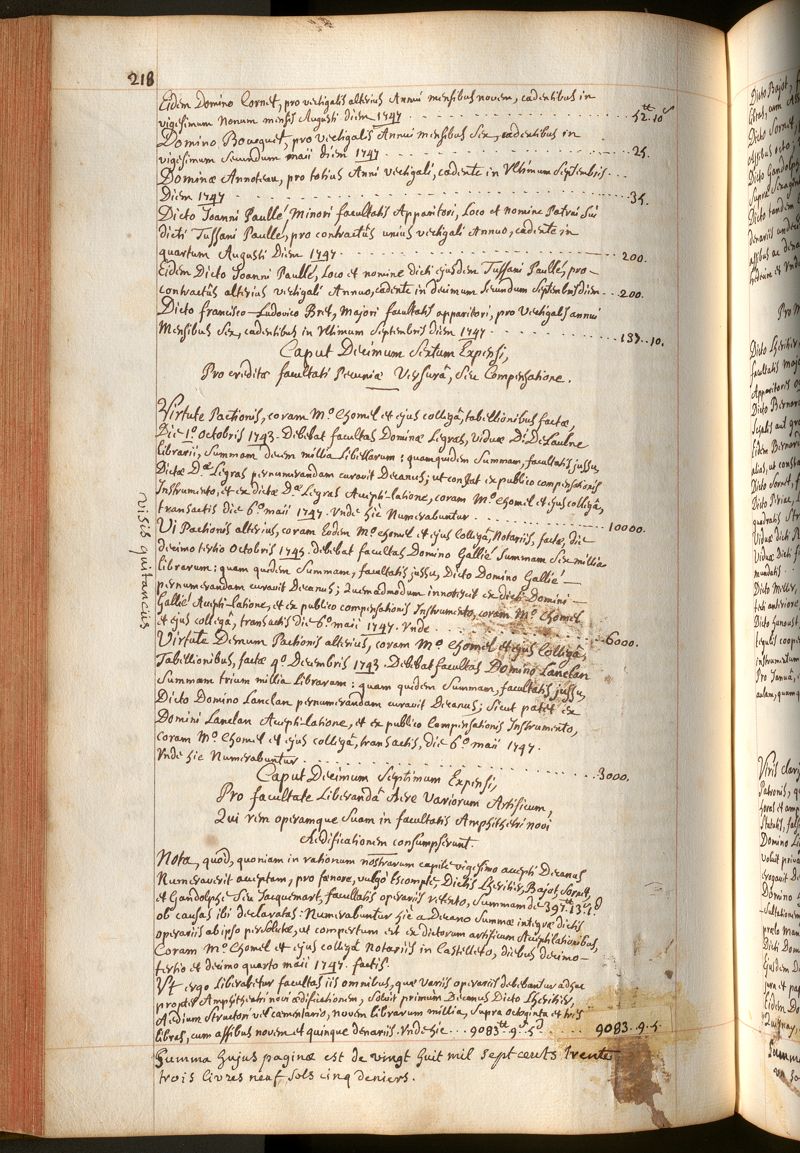 218
Eidem Domino Cornet, pro vectigalis alterius Annui mensibus novem, cadentibus in
vigesimum nonum mensis Augusti diem 1747 . . . 52.tt 10s
Domino Bourguet, pro vectigalis Annui mensibus Sex, cadentibus in
vigesimum secundum maii diem 1747 . . . 25.
Dominæ Annoteau, pro totius Anni vectigali, cadente in Ultimum Septembris
Diem 1747 . . . 35.
Dicto Joanni Paullé, Minori facultatis Apparitori, Loco et nomine Patrui Sui
dicti Tussani Paulle, pro contractûs unius vectigali Annuo, cadente in
quartum Augusti Diem 1747 . . . 200.
Eidem Dicto Joanni Paullé, Loco et nomine dicti ejusdem Tussani Paullé, pro
contractûs alterius vectigali Annuo, cadente in decimum secundum Septembris diem . . 200.
Dicto francisco-Ludovico Bret, Majori facultatis apparitori, pro Vectigalis annui
Mensibus Sex, cadentibus in Ultimum Septembris diem 1747 . . . 137..10.
Caput Decimum Sextum Expensi,
Pro creditæ facultati Pecuniæ Versurâ, Seu Compensatione.
Virtute Pactionis, coram M.o Chomel et ejus collegâ, tabellionibus factæ,
Die 1.o Octobris 1743. Debebat facultas Dominæ Legras, Viduæ D.i DeLaulne
Librarii, Summam decem millia Libellarum: quamquidem Summam, facultatis jussu,
Dictæ D.æ Legras pernumerandam curavit Decanus; ut constat ex publico compensationis
Instrumento, et ex dictæ D.æ Legras Accepti-latione, coram M.o Chomel et ejus collegâ,
transactis die 6.o maii 1747. Unde hîc Numerabuntur . . . 10000.
Vi Pactionis alterius, coram Eodem M.o Chomel et ejus Collegâ, Notariis, factæ, die
decimo tertio Octobris 1743. debebat facultas Domino Gallié Summam Sex millia
librarum: quam quidem Summam, facultatis jussu, Dicto Domino Gallié
pernumerandam curavit Decanus; Quemadmodum innotescit ex dicti Domini
Gallié Accepti-latione, et ex publico compensationis Instrumento, coram M.o Chomel
et ejus collegâ, transactis die 6.o maii 1747. Unde . . . 6000.
Virtute Demum Pactionis alterius, coram M.o Chomel et ejus Collegâ,
Tabellionibus, factæ 4.o Decembris 1743. Debebat facultas Domino Lanelan
Summam trium millia Librarum: quam quidem Summam, facultatis jussu,
Dicto Domino Lanelan pernumerandam curavit Decanus; Sicut patet ex
Domini Lanelan Accepti-latione, et ex publico Compensationis Instrumento,
coram M.o Chomel et ejus collegâ, transactis, die 6.o maii 1747.
Unde hîc Numerabuntur . . . 3000.
visis quitanciis
Caput Decimum Septimum Expensi,
Pro facultate Liberandâ Aere Variorum Artificum,
Qui rem operamque Suam in facultatis Amphitheatri novi
Aedificationem consumpserunt.
Nota, quòd, quoniam in rationum nostrarum capite vigesimo accepti Decanus
Numeraverit acceptam, pro fœnore, vulgò Escompte, Dictis Lheritier, Bajot, Sornet,
et Gandolphe Seu Jacquemart, facultatis operariis retento, Summam de 397.tt 13.s 1.d
ob causas ibi declaratas: Numerabuntur hîc à Decano Summæ integræ dictis
operariis ab ipso persolutæ, ut compertum est ex dictorum artificum Acceptilationibus,
Coram M.o Chomel et ejus collegâ Notariis in Castelleto, diebus decimo-
tertio et decimo quarto maii 1747. factis.
Ut ergo Liberabetur facultas iis omnibus, quæ variis operariis debebantur adhuc
propter Amphitheatri novi ædificationem, Solvit primum Decanus Dicto Lheritier,
Ædium Structori seu cæmentario, novem librarum millia, Supra octoginta et tres
libras, cum assibus novem et quinque denariis. Unde hîc . . . 9083.tt 9.s 5.d . . . 9083. 9. 5.
Summa hujus paginæ est de vingt huit mil sept cents trente
trois livres neuf sols cinq deniers.